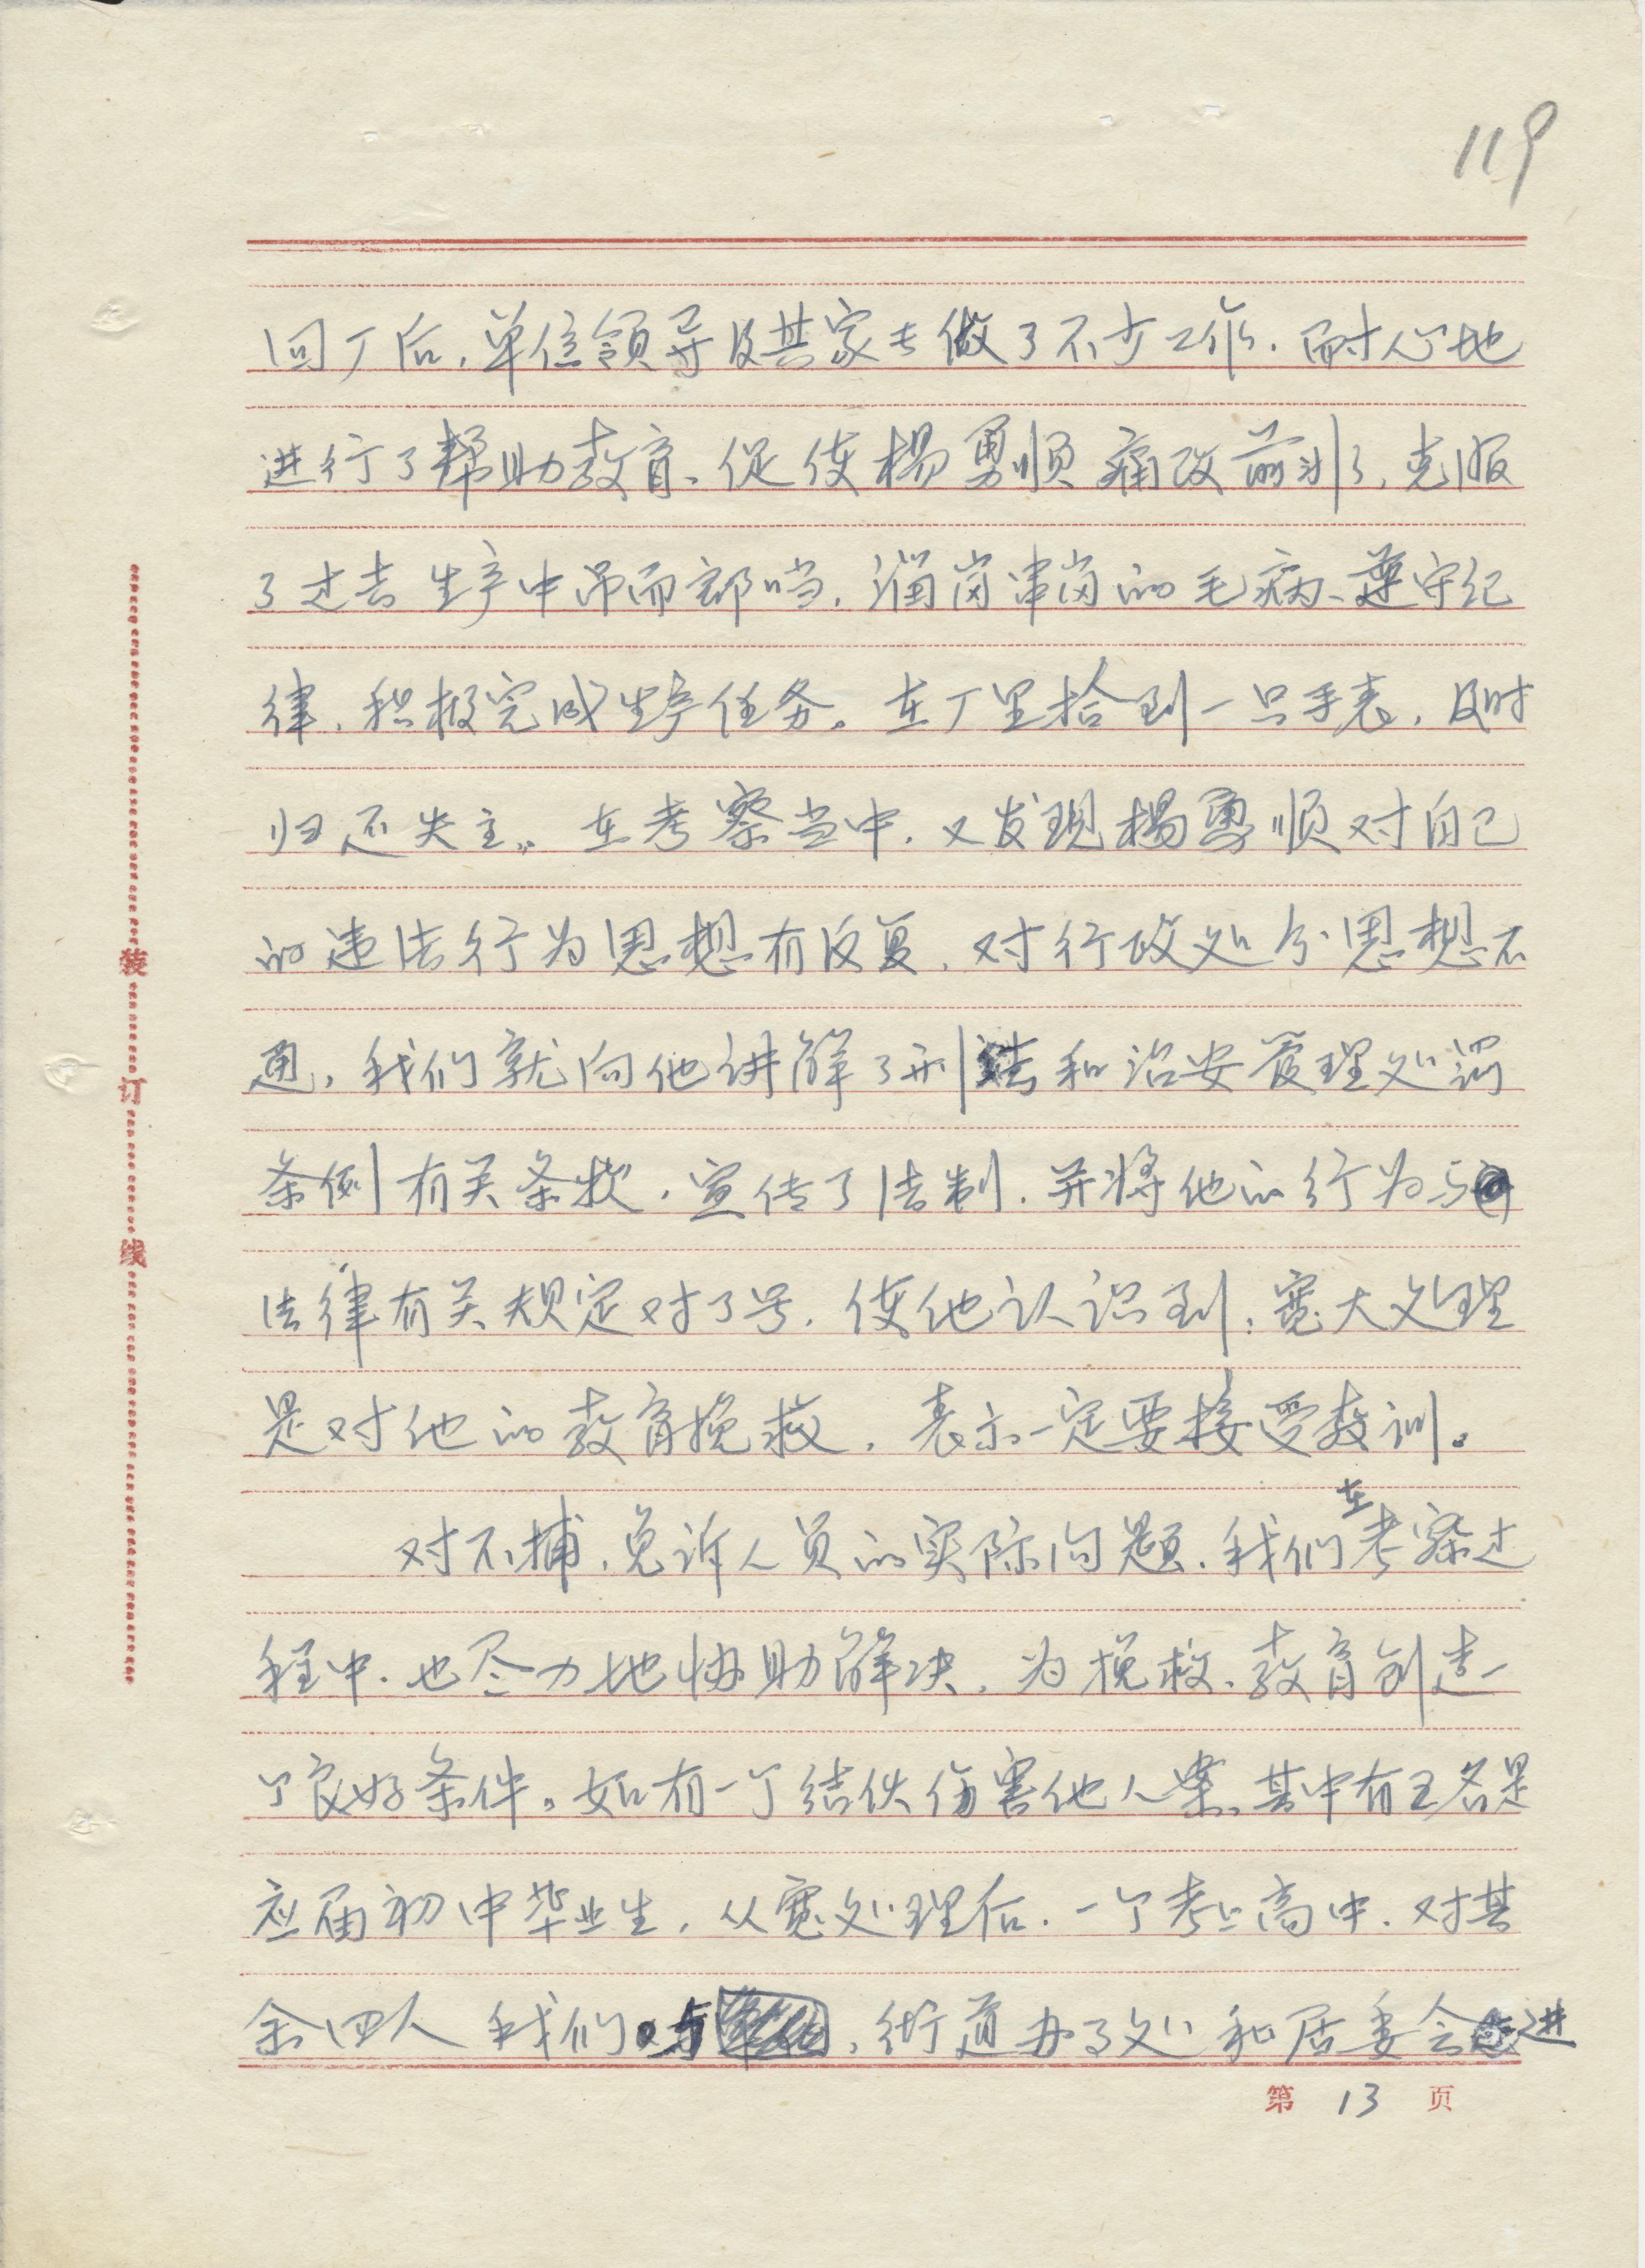 119
回厂后,单位领导及其家长做了不少工作.耐心地
进行了帮助教育、促使杨勇顺痛改前非,克服
了过去生产中吊而郎当,溜岗串岗的毛病、遵守纪
律、积极完成生产任务。在厂里拾到一只手表,及时
归还失主。在考察当中,又发现杨勇顺对自己
的违法行为思想有反复,对行政处分思想不
通,我们就向他讲解了刑法和治安管理处罚
条例有关条款,宣传了法制.并将他的行为与
法律有关规定对了号.使他认识到:宽大处理
是对他的教育挽救,表示一定要接受教训。
对不捕,免诉人员的实际问题,我们在考察过
程中.也尽力地协助解决,为挽救、教育创造一
个良好条件。如有一个结伙伤害他人案、其中有五名是
应届初中毕业生,从宽处理后.一个考上高中.对其
余四人我们与,街道办事处和居委会进
第 13 页
装订线